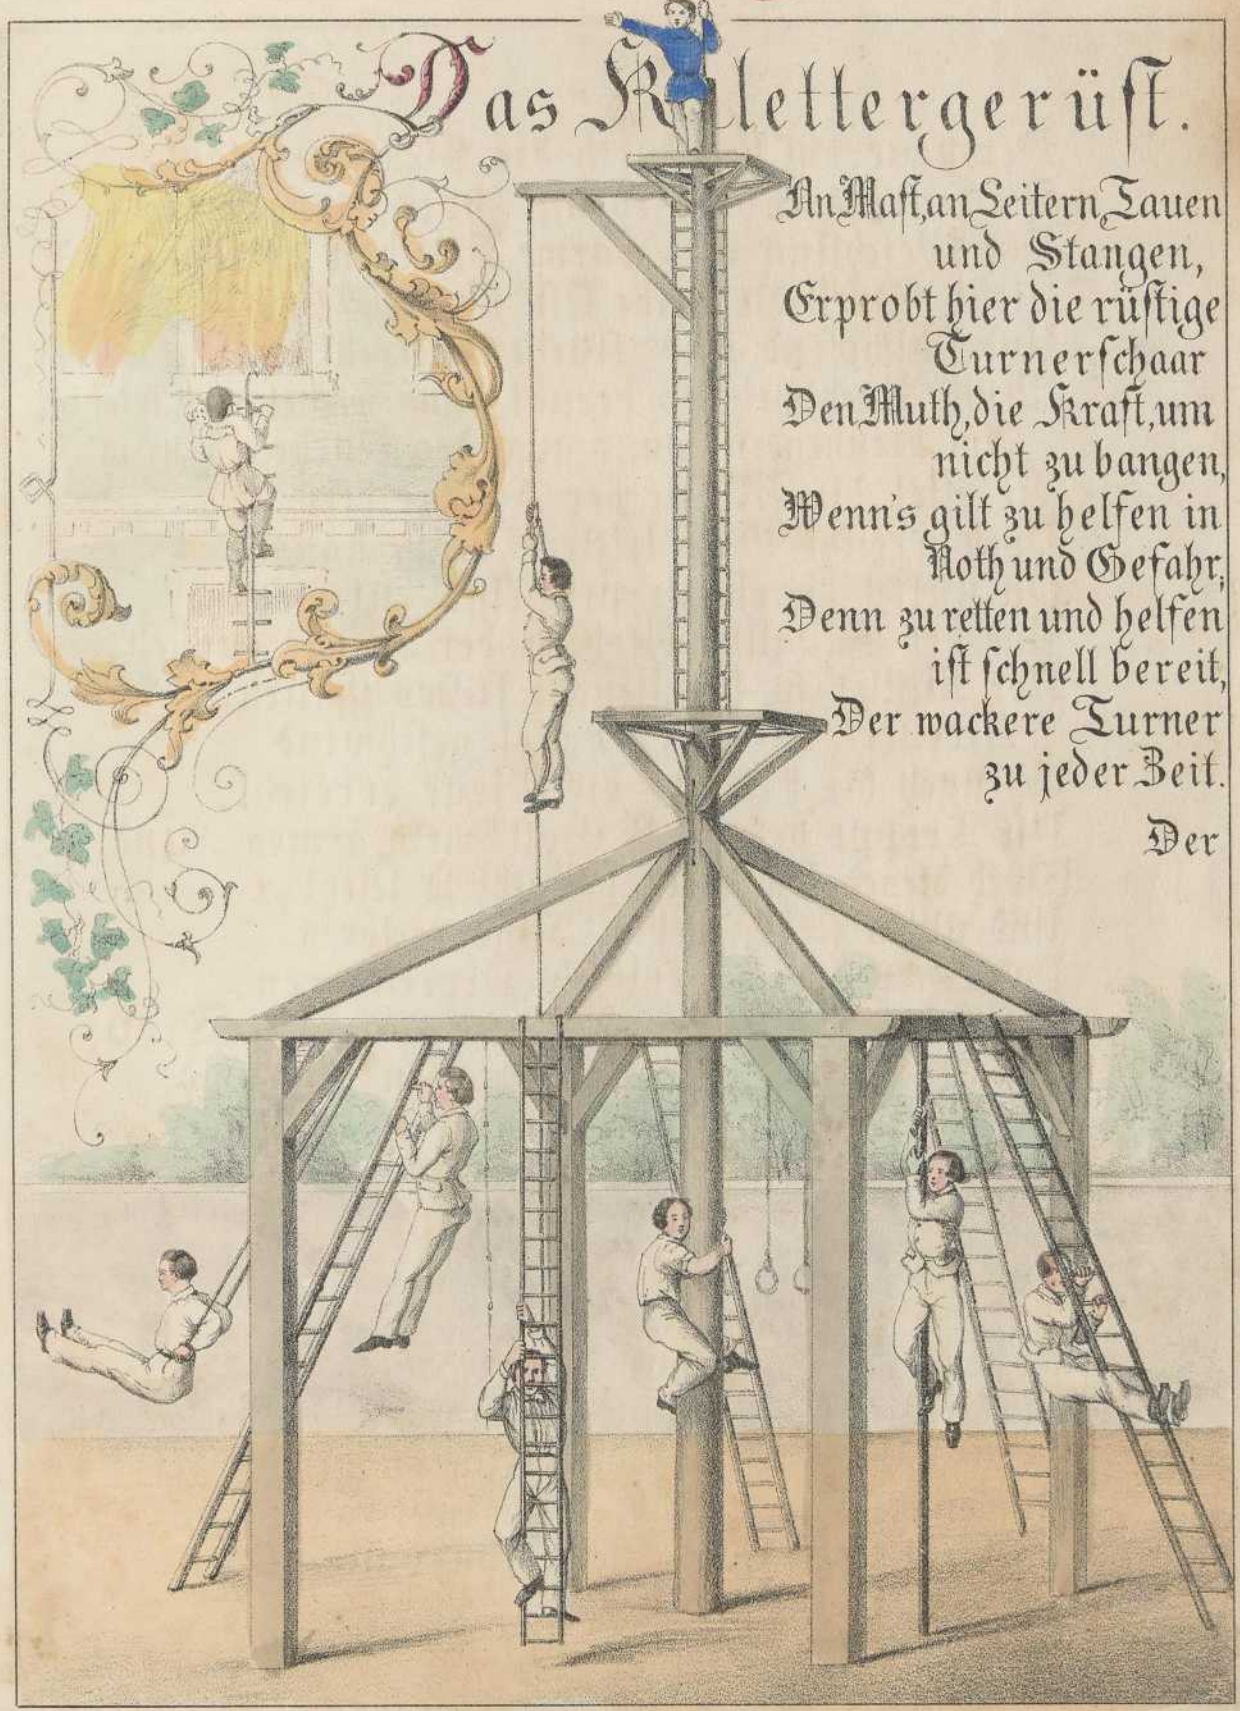 Das Klettergerüst.
An Mast, an Leitern, Tauen
und Stangen,
Erprobt hier die rüstige
Turnerschaar
Den Muth, die Kraft, um
nicht zu bangen,
Wenn's gilt zu helfen in
Noth und Gefahr;
Denn zu retten und helfen
ist schnell bereit,
Der wackere Turner
zu jeder Zeit.
Der